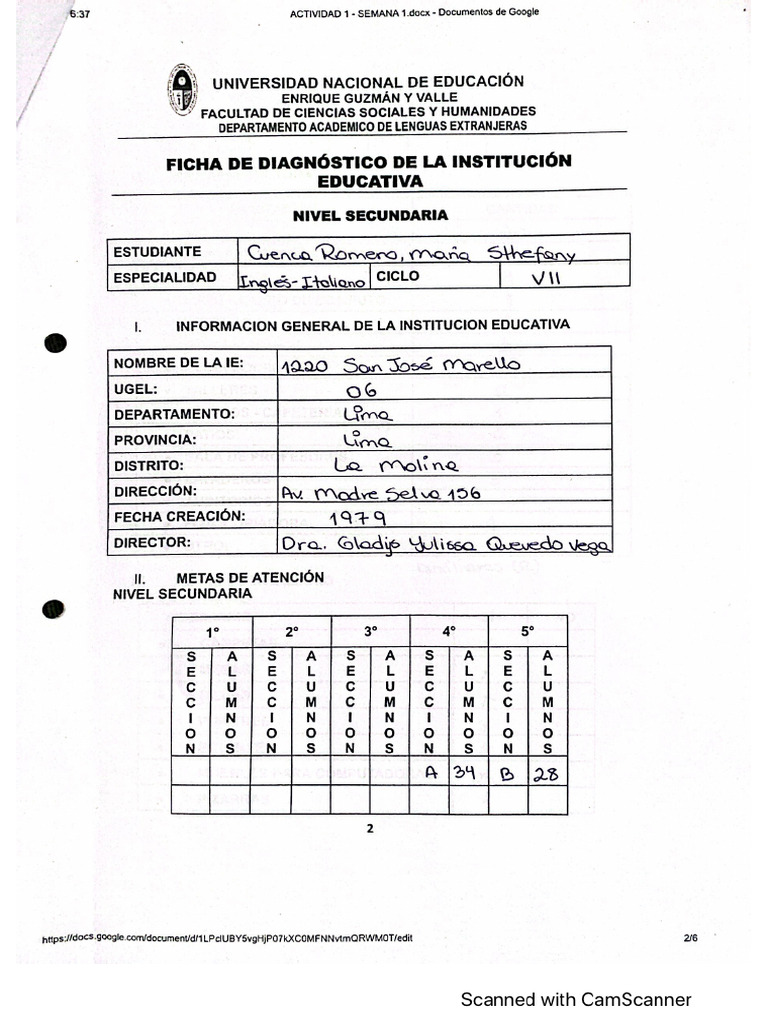 6:37 ACTIVIDAD 1 - SEMANA 1.docx - Documentos de Google
UNIVERSIDAD NACIONAL DE EDUCACIÓN
ENRIQUE GUZMÁN Y VALLE
FACULTAD DE CIENCIAS SOCIALES Y HUMANIDADES
DEPARTAMENTO ACADEMICO DE LENGUAS EXTRANJERAS
FICHA DE DIAGNÓSTICO DE LA INSTITUCIÓN
EDUCATIVA
NIVEL SECUNDARIA
ESTUDIANTE Cuenca Romero, María Sthefany
ESPECIALIDAD Inglés-Italiano CICLO VII
I. INFORMACION GENERAL DE LA INSTITUCION EDUCATIVA
NOMBRE DE LA IE: 1220 San José Marello
UGEL: 06
DEPARTAMENTO: Lima
PROVINCIA: Lima
DISTRITO: La Molina
DIRECCIÓN: Av. Madre Selva 156
FECHA CREACIÓN: 1979
DIRECTOR: Dra. Gladys Yulissa Quevedo Vega
II. METAS DE ATENCIÓN
NIVEL SECUNDARIA
1° 2° 3° 4° 5°
SECCION ALUMNOS SECCION ALUMNOS SECCION ALUMNOS SECCION ALUMNOS SECCION ALUMNOS
A 34 B 28
2
https://docs.google.com/document/d/1LPclUBY5vgHjP07kXC0MFNNvtmQRWM0T/edit 2/6
Scanned with CamScanner